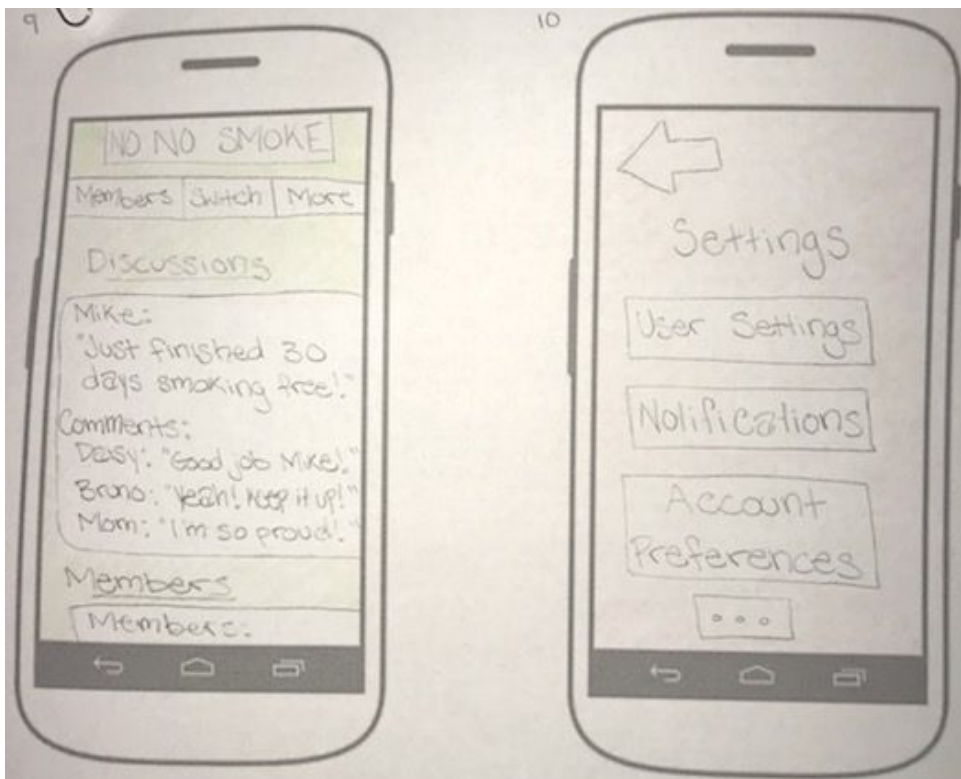 9
NO NO SMOKE
Members Switch More
Discussions
Mike:
"Just finished 30
days smoking free!"
Comments:
Daisy: "Good job Mike!"
Bruno: "Yeah! Keep it up!"
Mom: "I'm so proud!"
Members
Members:
10
Settings
User Settings
Notifications
Account
Preferences